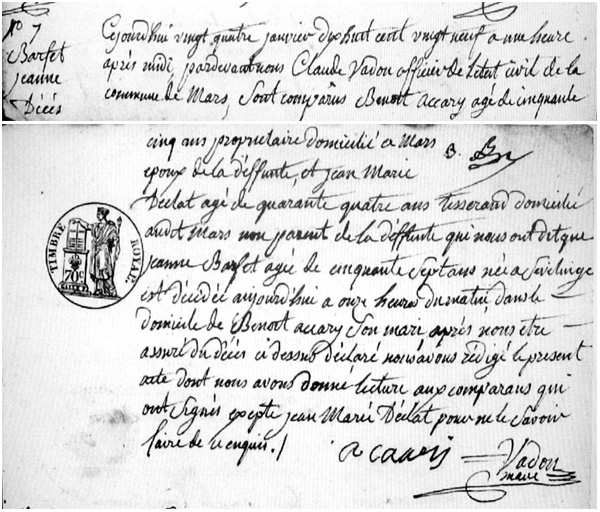 N° 7
Barfet
jeanne
Décés
Cejourdhui vingt quatre janvier dix huit cent vingt neuf a une heure
aprés midi, pardevant nous Claude Vadon officier de létat civil de la
commune de Mars, sont comparus Benoit accary agé de cinquante
cinq ans proprietaire domicilié a Mars
epoux de la déffunte, et jean Marie
Déclat agé de quarante quatre ans tisserand domicilié
audit Mars non parent de la déffunte qui nous ont dit que
jeanne Barfet agée de cinquante sept ans née a Sevelinge
est décédée aujourdhui a onze heures du matin dans le
domicile de Benoit accary son mari aprés nous etre
assuré du décés ci dessus déclaré nous avons rédigé le present
acte dont nous avons donné lecture aux comparans qui
ont signés excepté jean Marie Déclat pour ne le savoir
faire de ce enquis ./
TIMBRE ROYAL
70c
B. accary
Vadon
maire